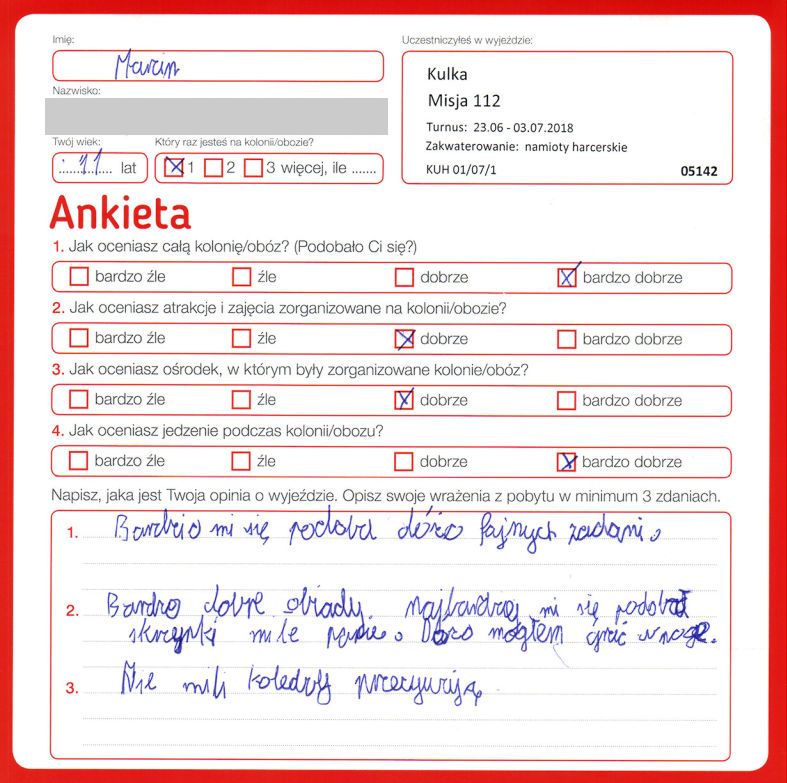 Imię:
Marcin
Nazwisko:
Twój wiek:
11 lat
Który raz jesteś na kolonii/obozie?
1 2 3 więcej, ile .......
Uczestniczyłeś w wyjeździe:
Kulka
Misja 112
Turnus: 23.06 - 03.07.2018
Zakwaterowanie: namioty harcerskie
KUH 01/07/1 05142
Ankieta
1. Jak oceniasz całą kolonię/obóz? (Podobało Ci się?)
bardzo źle źle dobrze bardzo dobrze
2. Jak oceniasz atrakcje i zajęcia zorganizowane na kolonii/obozie?
bardzo źle źle dobrze bardzo dobrze
3. Jak oceniasz ośrodek, w którym były zorganizowane kolonie/obóz?
bardzo źle źle dobrze bardzo dobrze
4. Jak oceniasz jedzenie podczas kolonii/obozu?
bardzo źle źle dobrze bardzo dobrze
Napisz, jaka jest Twoja opinia o wyjeździe. Opisz swoje wrażenia z pobytu w minimum 3 zdaniach.
1. mi się dóżo fajnych zadani.
2. Bardzo dobre obiady. najbardzej mi się podobał
skrzynki miłe panie. mogłem grać w noge.
3. Nie mili koledzy